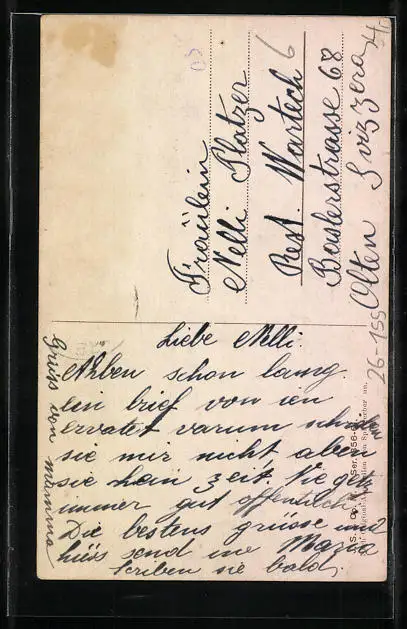 Fräulein
Nelli Platzer
Rest. Wartech
Baslerstrasse 68
Olten Svizzera
26-155
Liebe Nelli
Ahben schon lamg
ein brief von ien
ervatet varum schreib
sie mir nicht aben
sie kein zeit. Vie getz
immer gut offentlich
Die bestens grüsse und
küss send me Maria
scriben sie bald.
Gruss von mamma